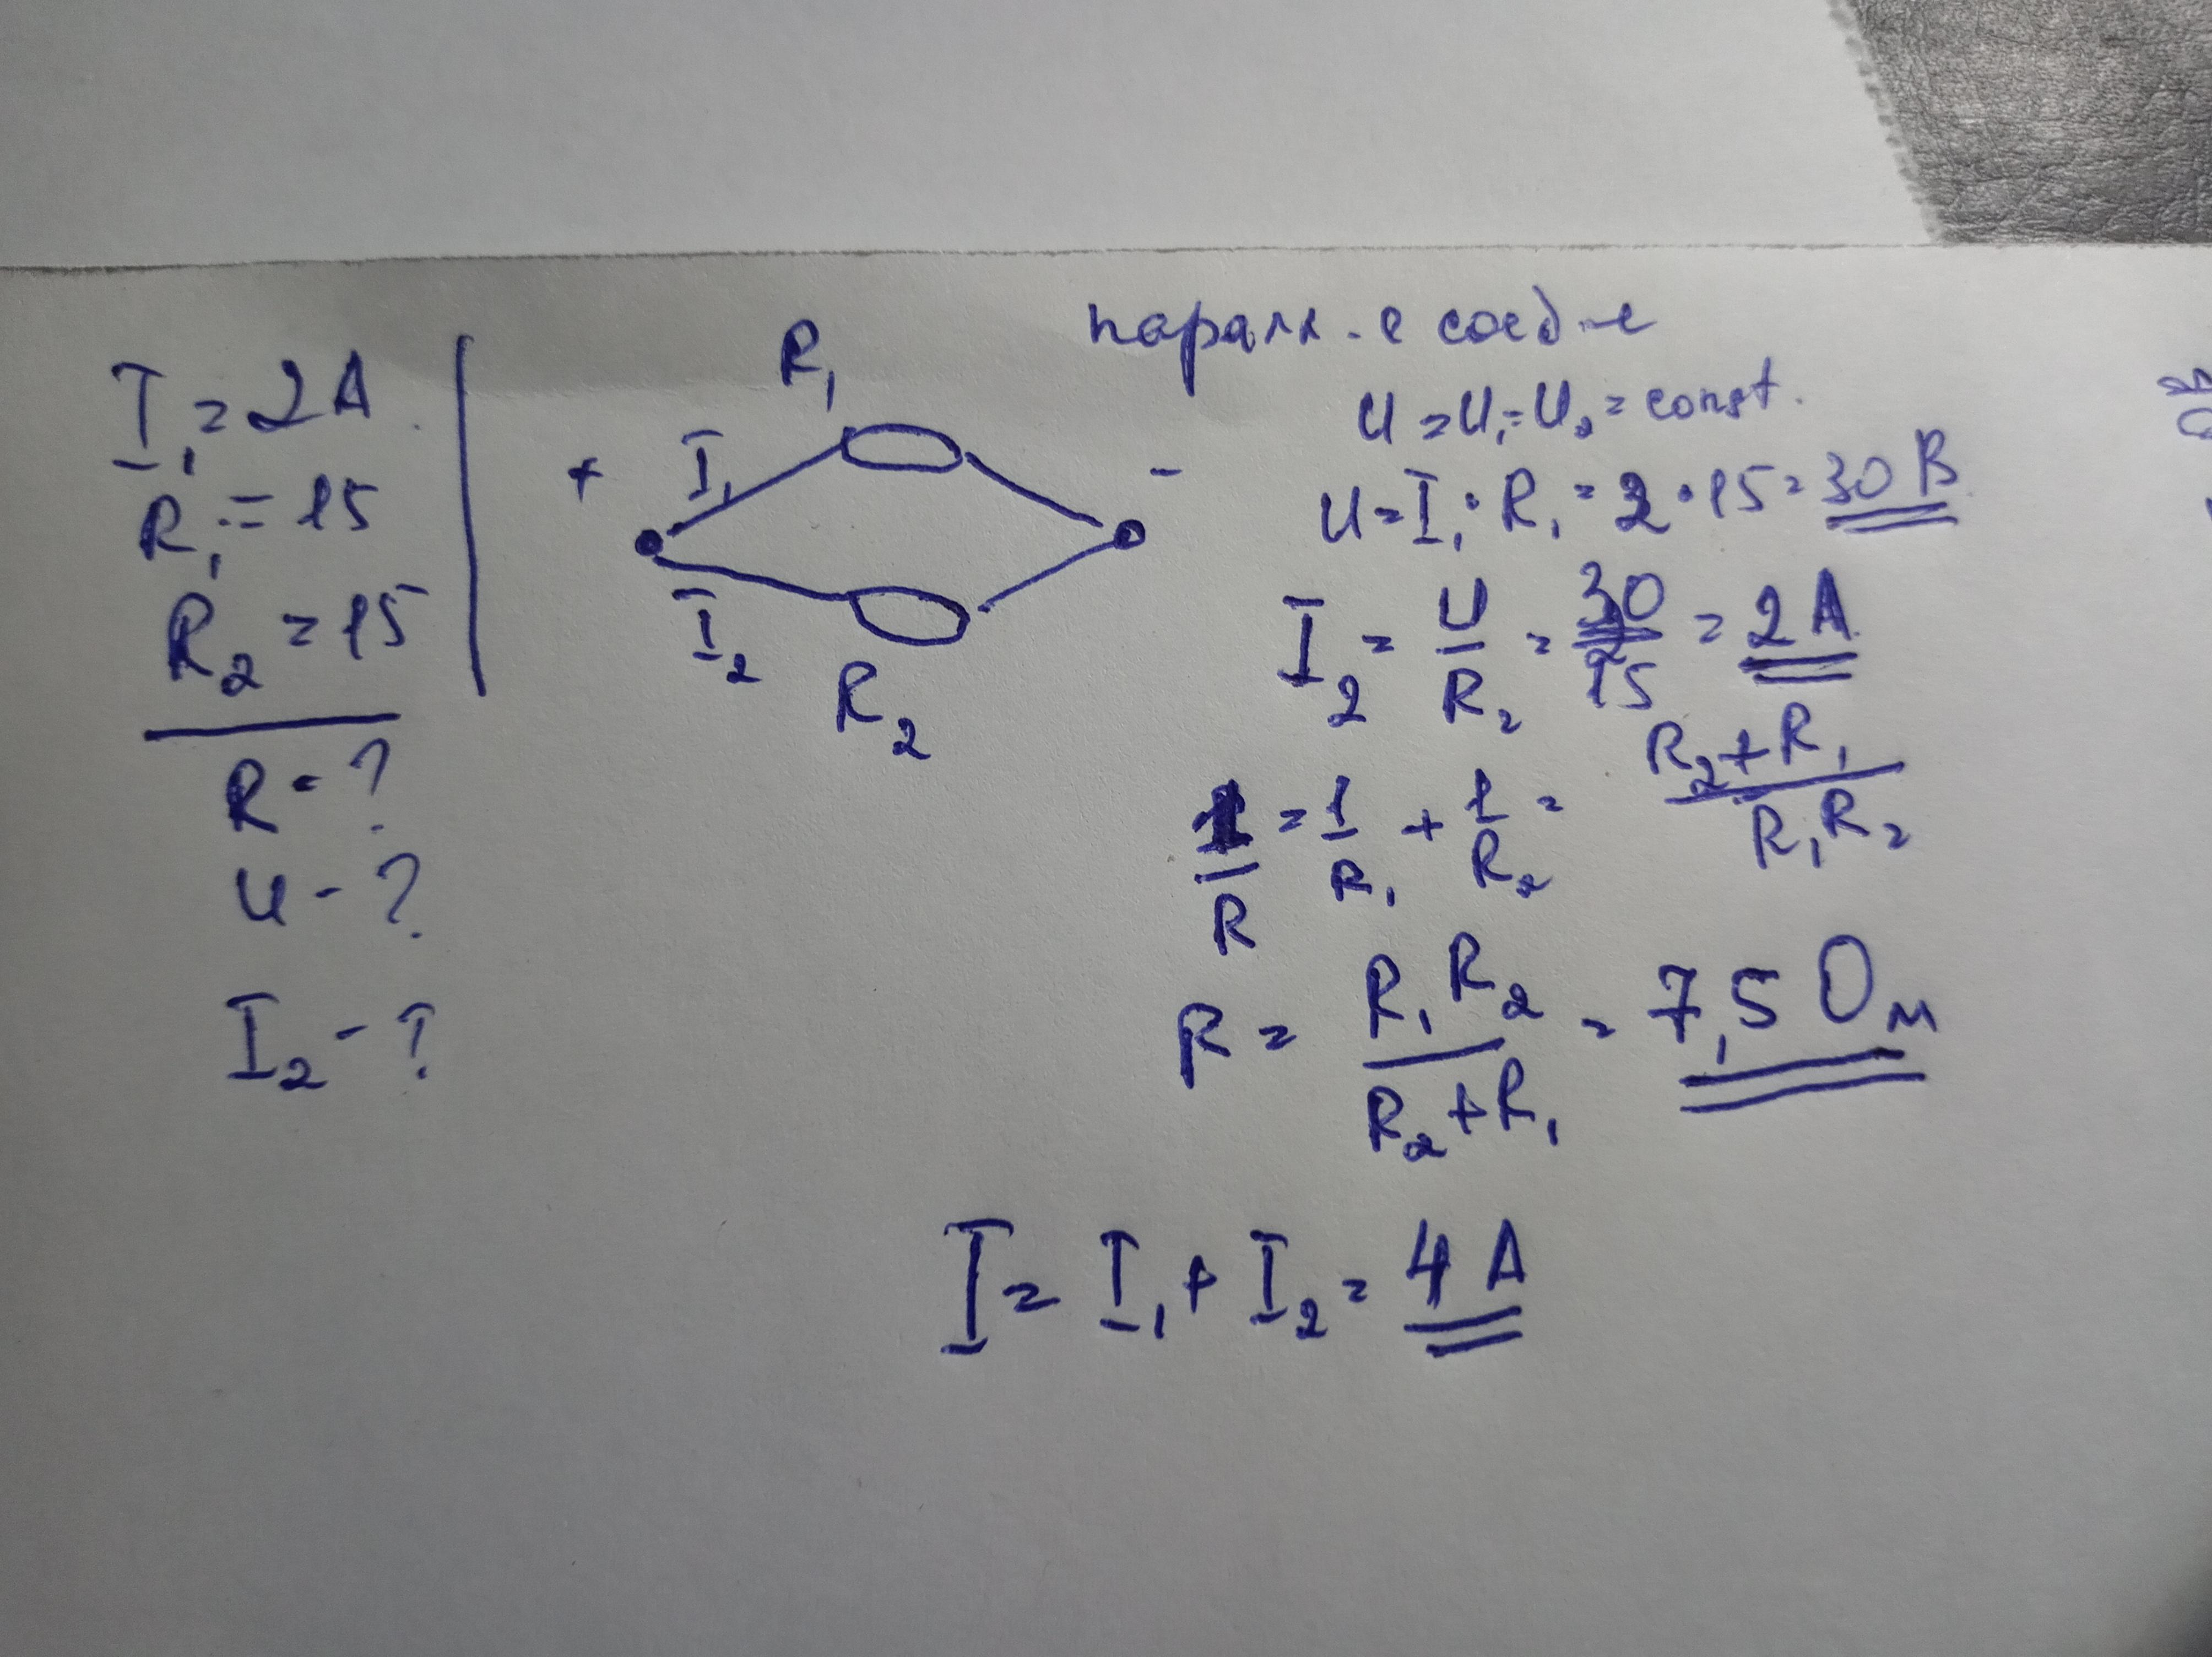 I₁ = 2A
R₁ = 15
R₂ = 15
R - ?
U - ?
I₂ - ?
R₁
+ I₁ -
I₂
R₂
паралл-е соед-е
U = U₁ = U₂ = const.
U = I₁ · R₁ = 2 · 15 = 30 В
I₂ = U/R₂ = 30/15 = 2 A
1/R = 1/R₁ + 1/R₂ = R₂+R₁/R₁R₂
R = R₁R₂/R₂+R₁ = 7,5 Ом
I = I₁ + I₂ = 4 A